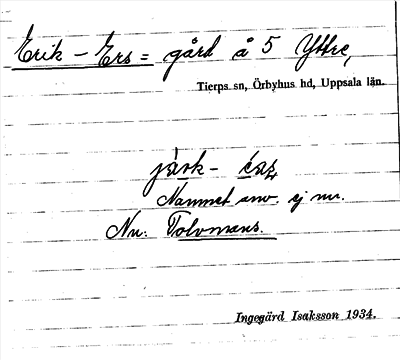 Erik-Ers= gård å 5 Yttre,
Tierps sn, Örbyhus hd, Uppsala län.
Namnet anv. ej nu.
Nu: Tolvmans.
Ingegärd Isaksson 1934.